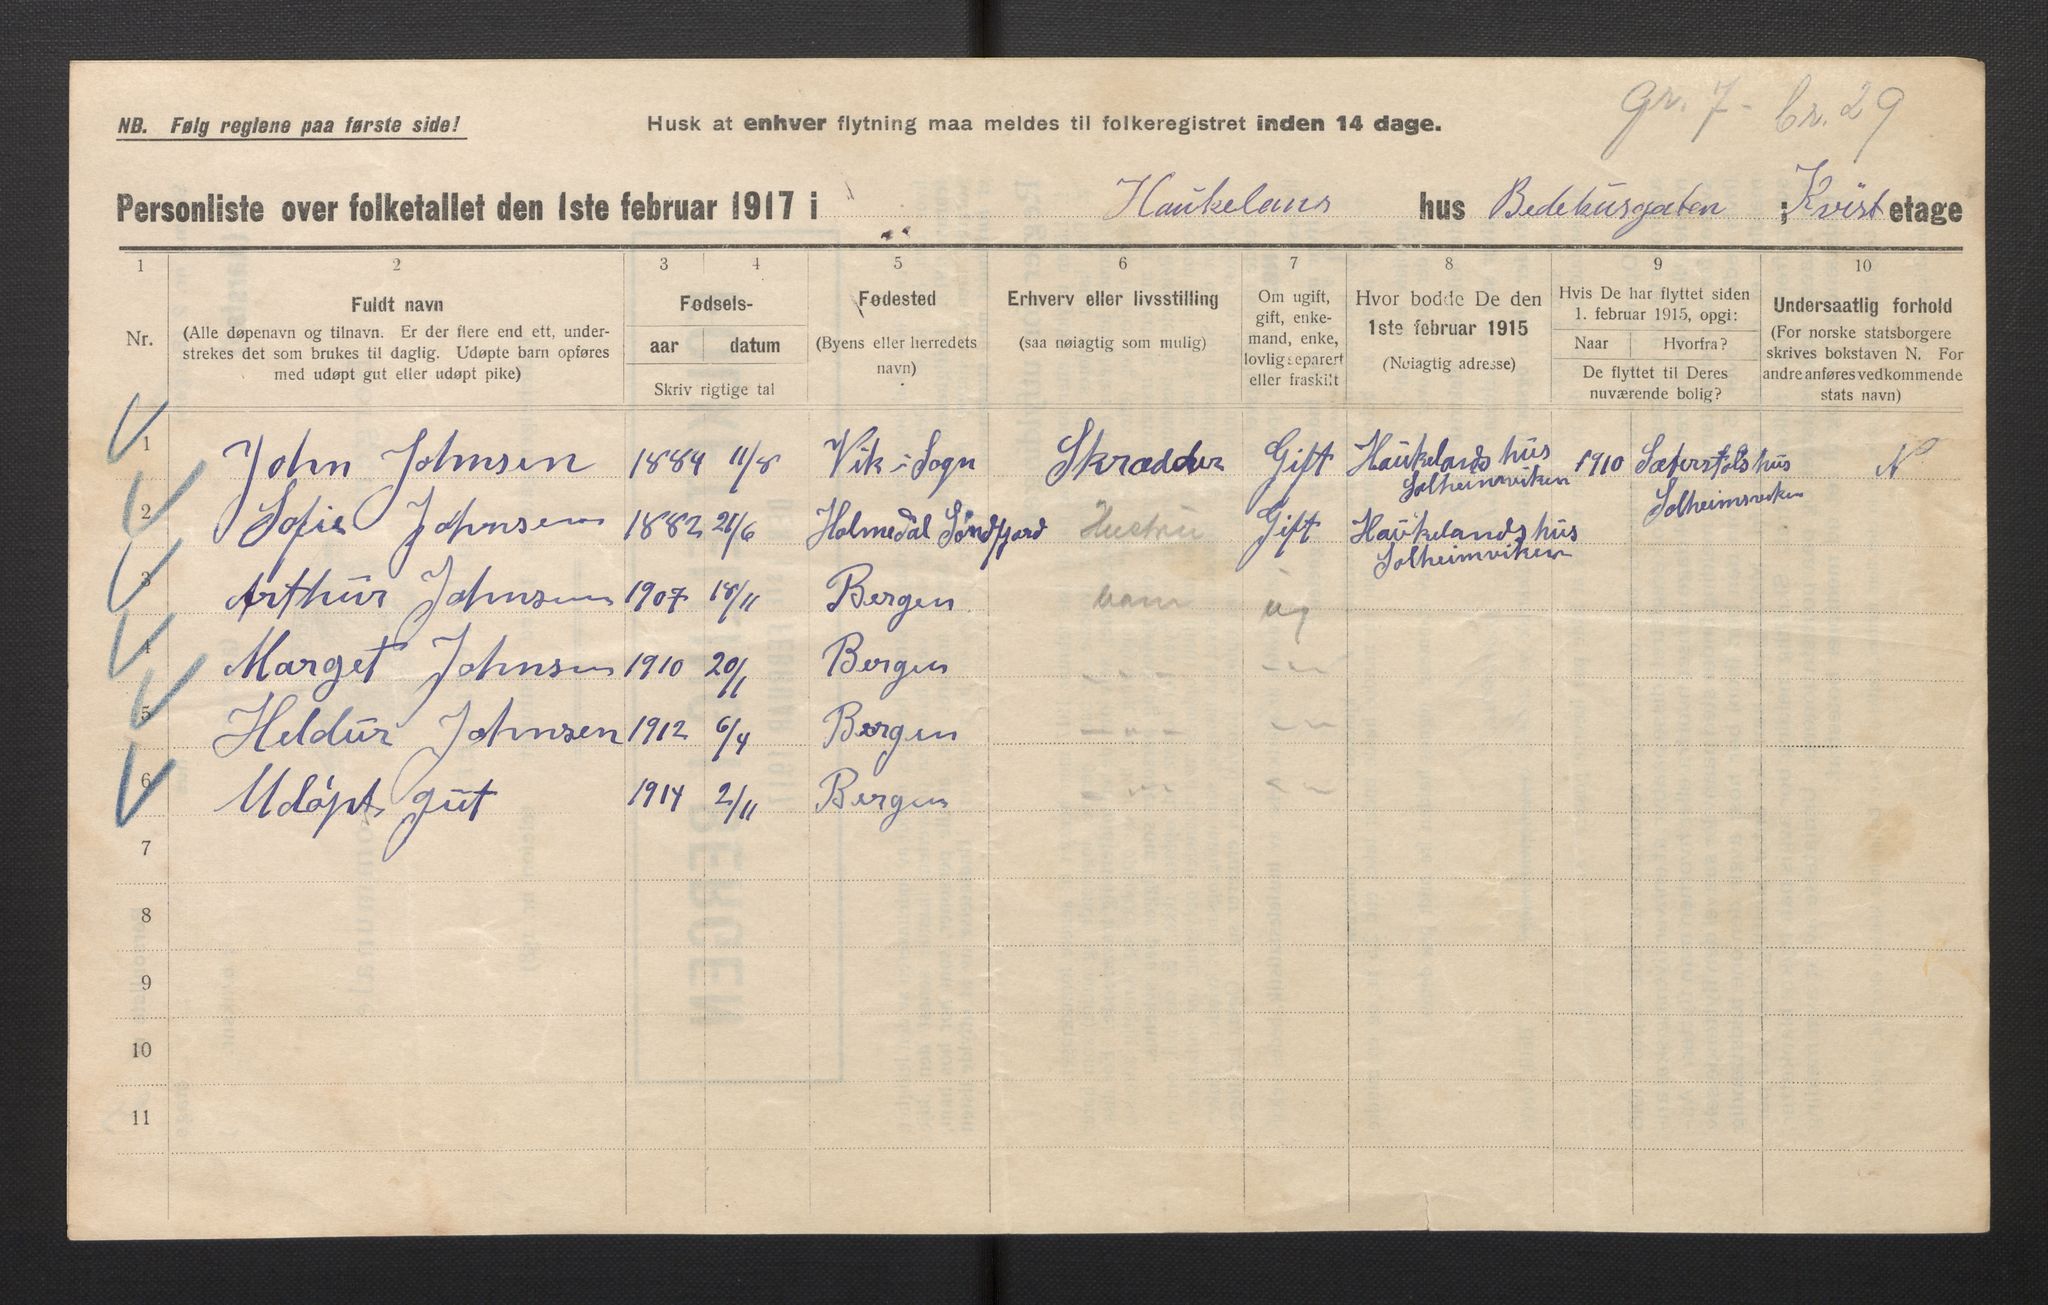 NB. Følg reglene paa første side!
Husk at enhver flytning maa meldes til folkeregistret inden 14 dage.
gr. 7 - br. 29
Personliste over folketallet den 1ste februar 1917 i Haukelans hus Bedehusgaten ; Kvist etage
1 2 3 4 5 6 7 8 9 10
Nr.
Fuldt navn
(Alle døpenavn og tilnavn. Er der flere end ett, under-
strekes det som brukes til daglig. Udøpte barn opføres
med udøpt gut eller udøpt pike)
Fødsels-
aar datum
Skriv rigtige tal
Fødested
(Byens eller herredets
navn)
Erhverv eller livsstilling
(saa nøiagtig som mulig)
Om ugift,
gift, enke-
mand, enke,
lovlig separert
eller fraskilt
Hvor bodde De den
1ste februar 1915
(Nøiagtig adresse)
Hvis De har flyttet siden
1. februar 1915, opgi:
Naar Hvorfra?
De flyttet til Deres
nuværende bolig?
Undersaatlig forhold
(For norske statsborgere
skrives bokstaven N. For
andre anføres vedkommende
stats navn)
1 John Johnsen 1884 11/8 Vik i Sogn Skrædder Gift Haukelands hus 1910 Sæterstøls hus N
Solheimsviken Solheimsviken
2 Sofie Johnsen 1882 21/6 Holmedal Søndfjord Hustru Gift Haukelandshus
Solheimviken
3 Arthur Johnsen 1907 18/11 Bergen barn ug
4 Marget Johnsen 1910 20/1 Bergen " " " — " —
5 Heldur Johnsen 1912 6/4 Bergen " " " — " —
6 Udøpt gut 1914 2/11 Bergen " — " —
7
8
9
10
11